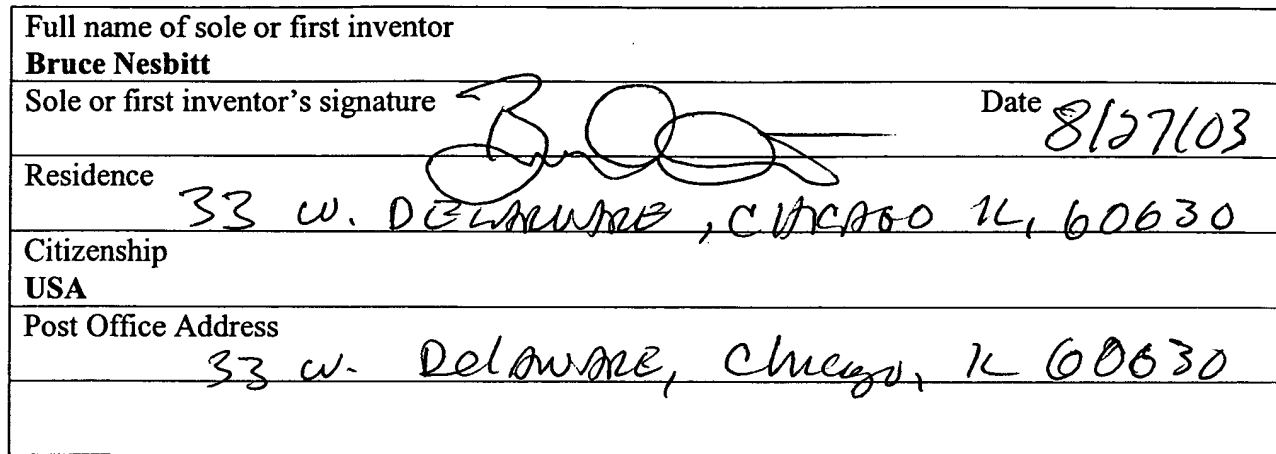 Full name of sole or first inventor
Bruce Nesbitt
Sole or first inventor's signature Date 8/27/03
Residence
33 W. DELAWARE, CHICAGO IL, 60630
Citizenship
USA
Post Office Address
33 W. Delaware, Chicago, IL 60630